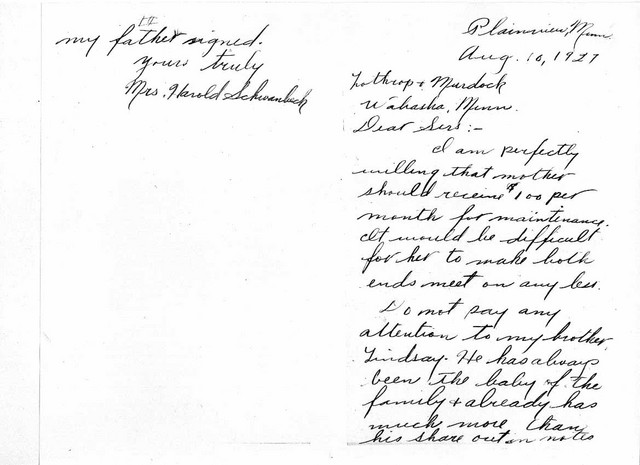 Plainview, Minn.
Aug. 10, 1927
Lothrop & Murdock
Wabasha, Minn.
Dear Sirs:-
I am perfectly
willing that mother
should receive $100 per
month for maintenance.
It would be difficult
for her to make both
ends meet on any less.
Do not pay any
attention to my brother,
Lindsay. He has always
been the baby of the
family & already has
much more than
his share out in notes
II
my father signed.
Yours truly
Mrs. Harold Schwanbeck